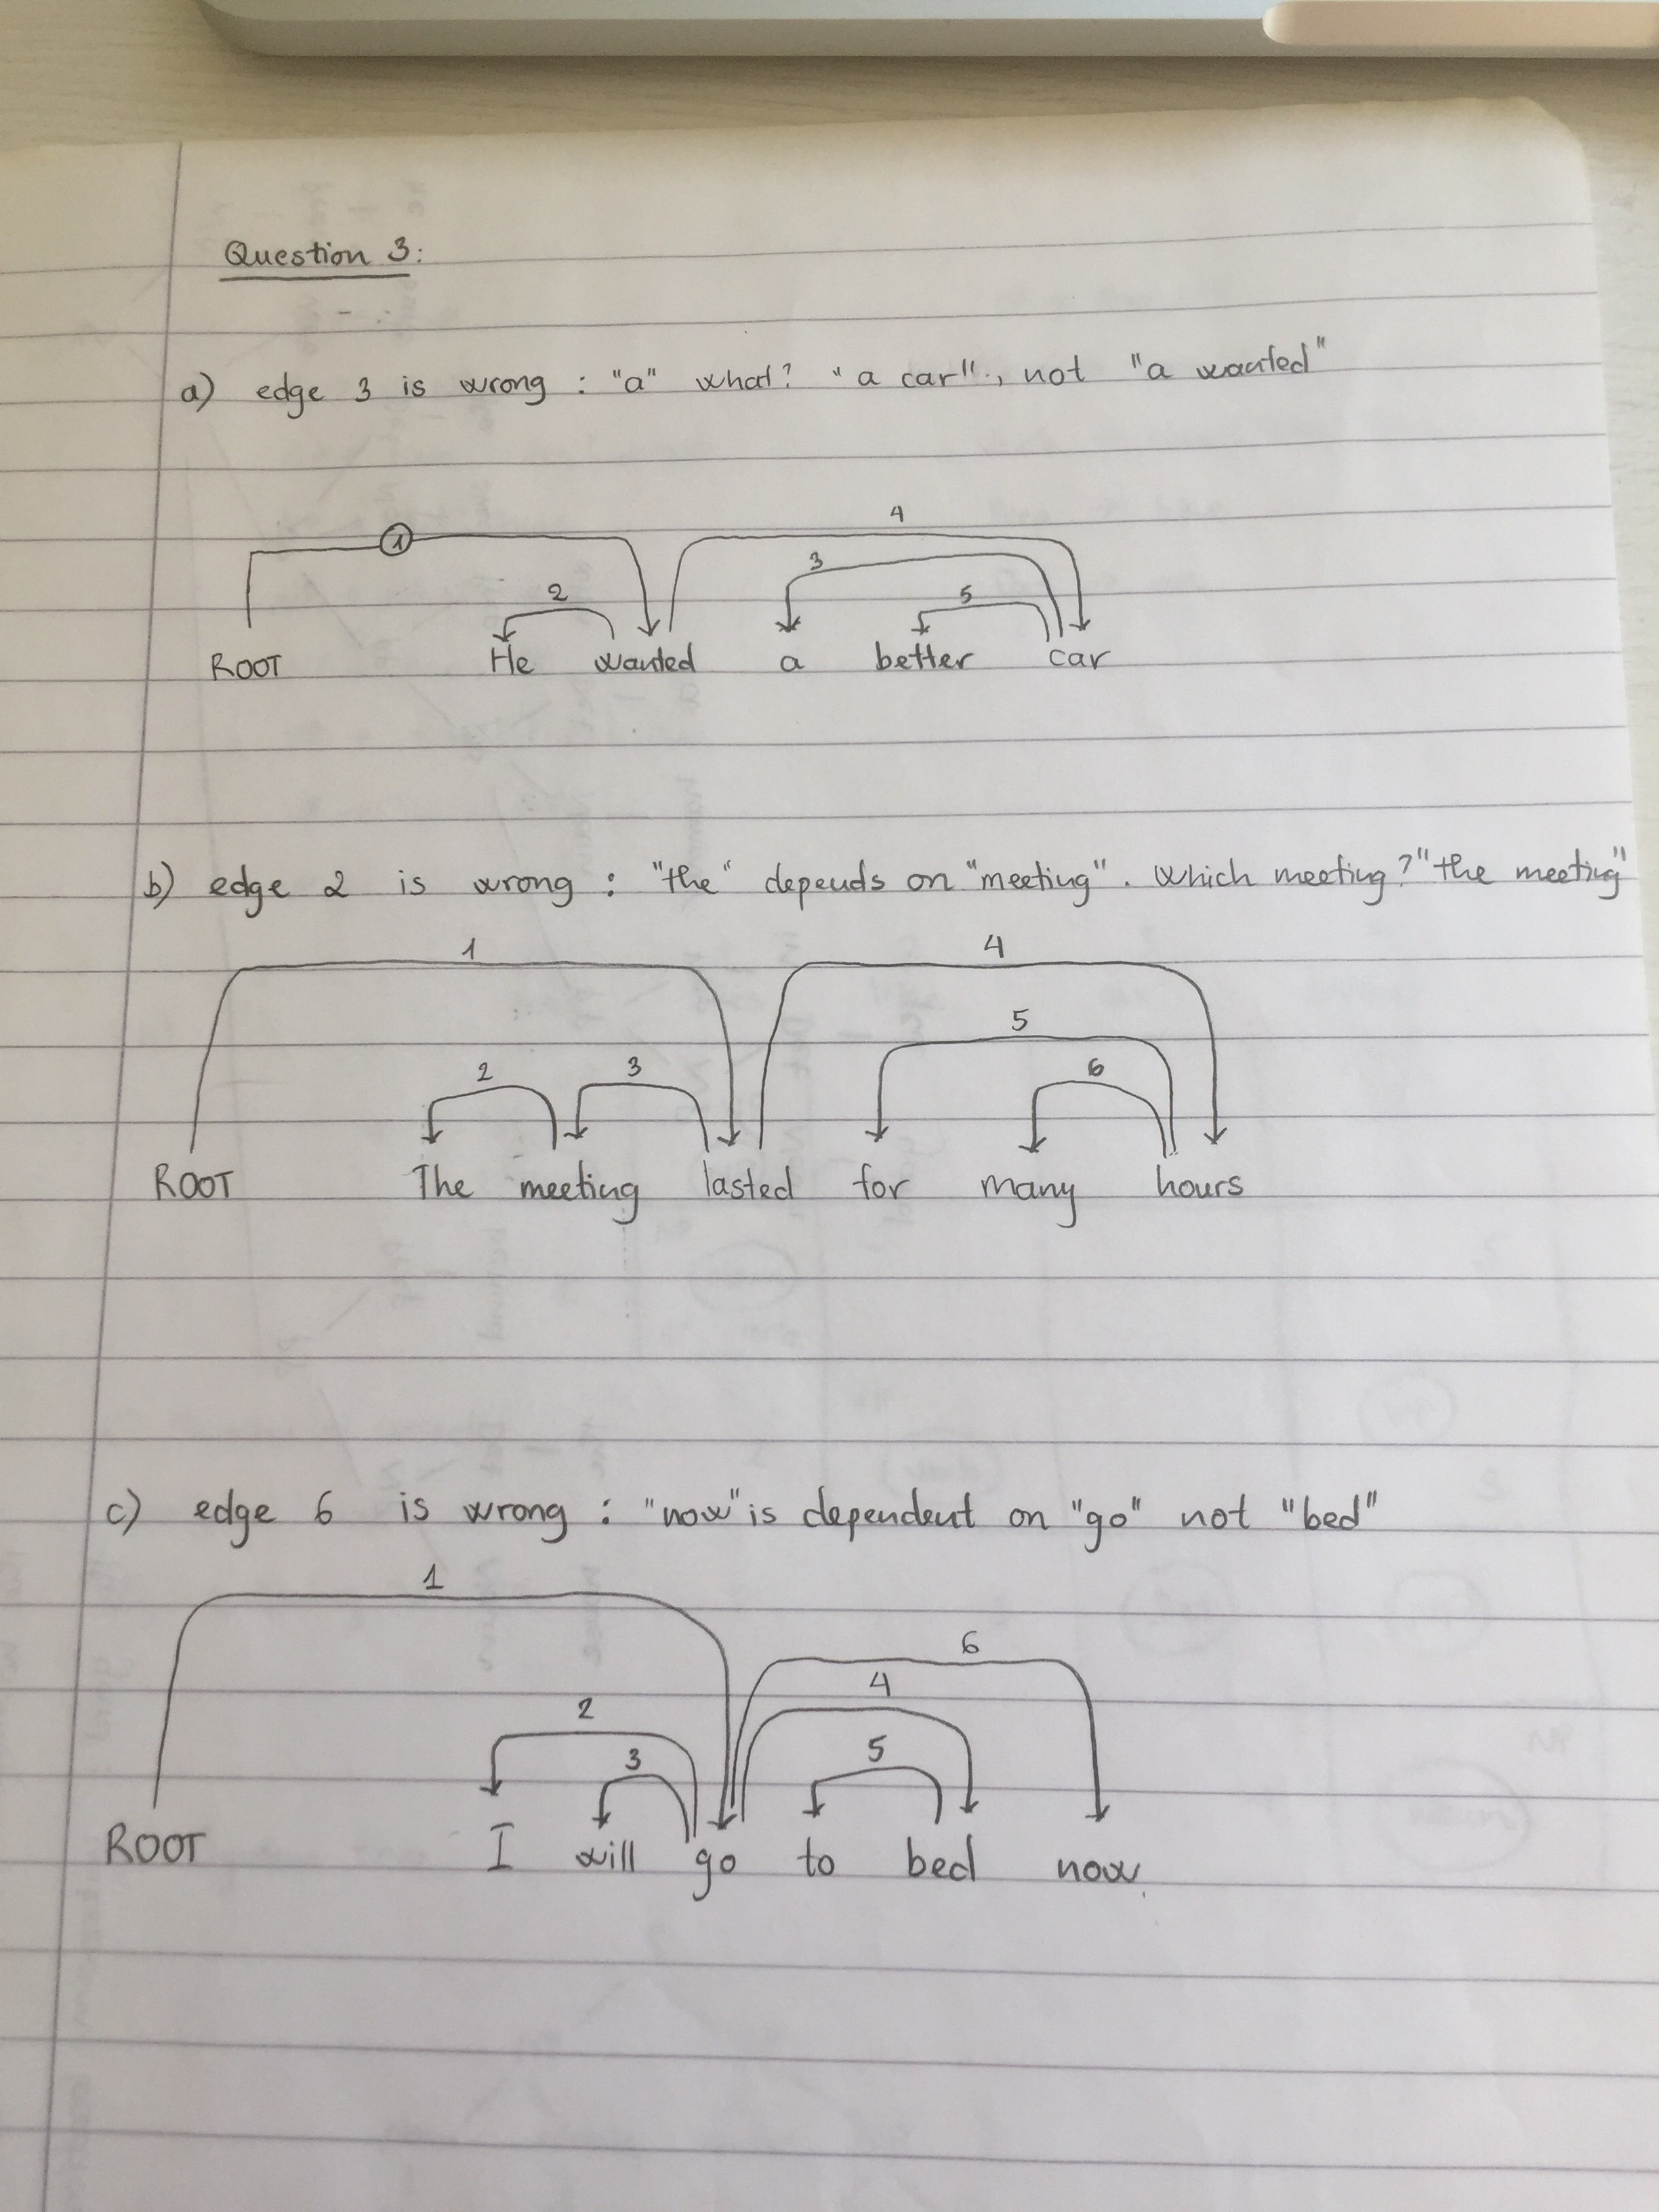 Question 3:
a) edge 3 is wrong : "a" what? "a car"., not "a wanted"
4
1
3
2
5
ROOT He wanted a better car
b) edge 2 is wrong : "the" depends on "meeting". Which meeting? "the meeting"
1 4
5
2 3 6
ROOT The meeting lasted for many hours
c) edge 6 is wrong : "now" is dependent on "go" not "bed"
1
6
4
2
3 5
ROOT I will go to bed now.